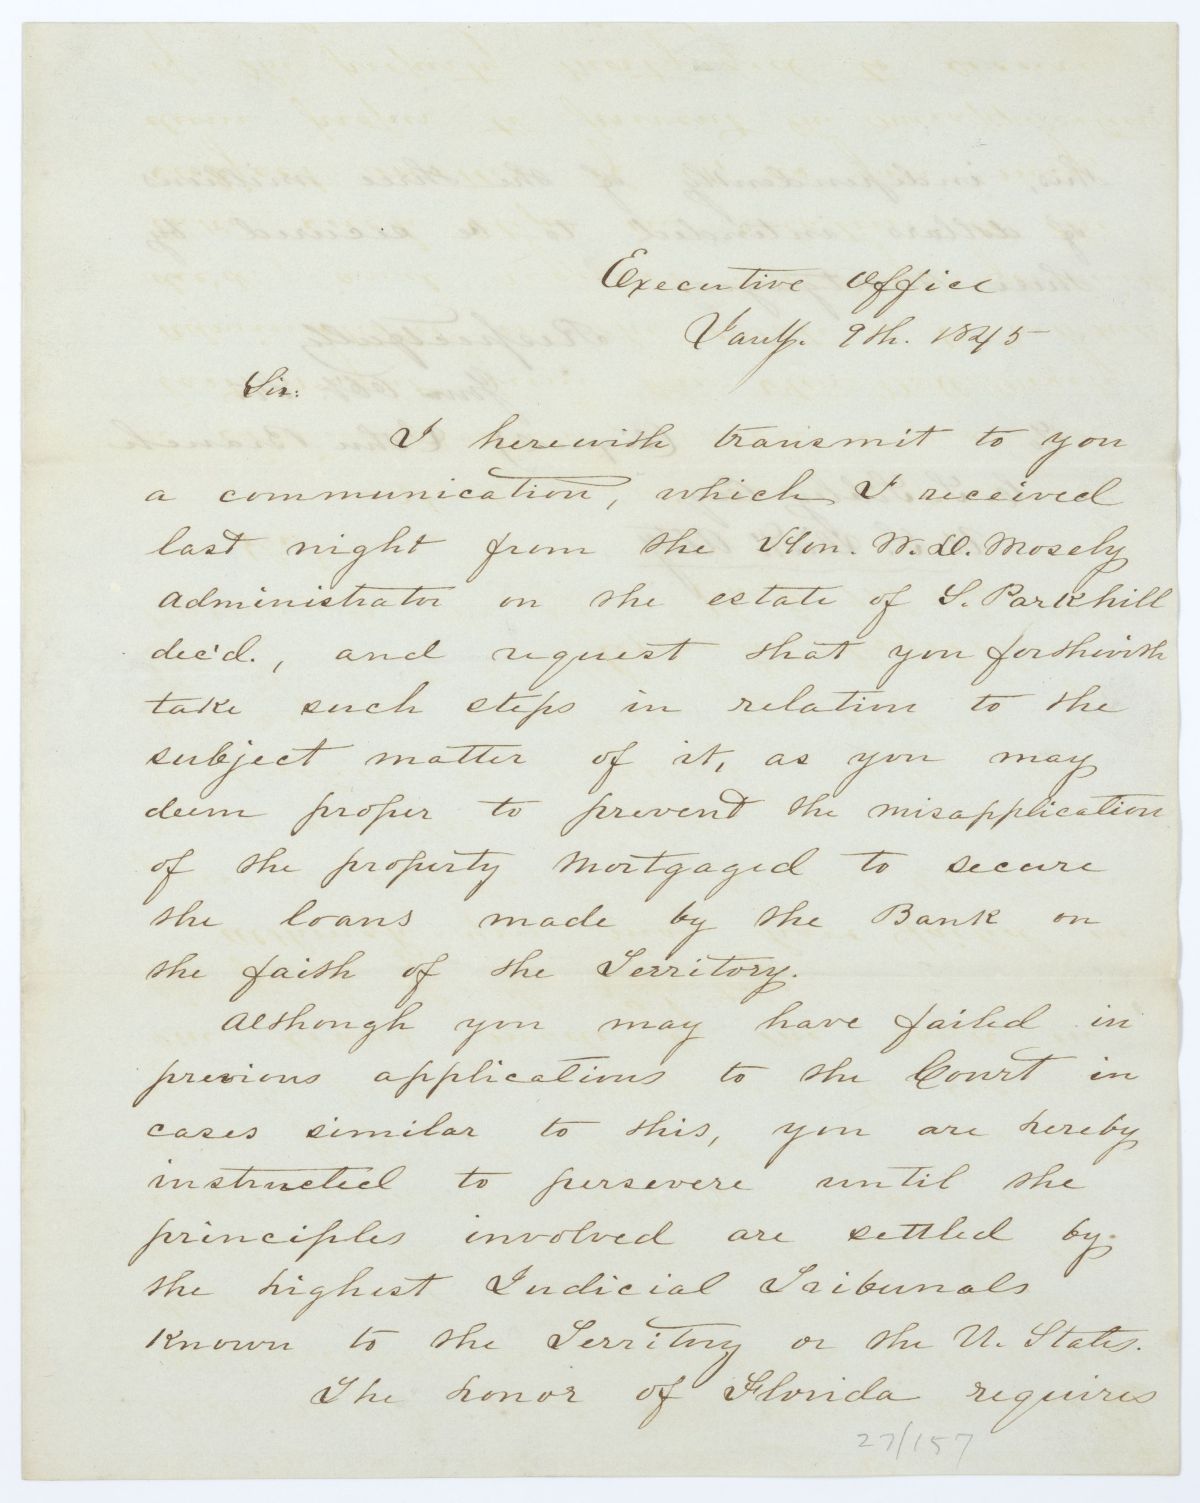 Executive Office
Jany. 9th. 1845
Sir:
I herewith transmit to you
a communication, which I received
last night from the Hon. W. D. Mosely
administrator on the estate of S. Parkhill
dec'd., and request that you forthwith
take such steps in relation to the
subject matter of it, as you may
deem proper to prevent the misapplication
of the property mortgaged to secure
the loans made by the Bank on
the faith of the Territory.
Although you may have failed in
previous applications to the Court in
cases similar to this, you are hereby
instructed to persevere until the
principles involved are settled by
the highest Judicial Tribunals
known to the Territory or the U. States.
The honor of Florida requires
27/157